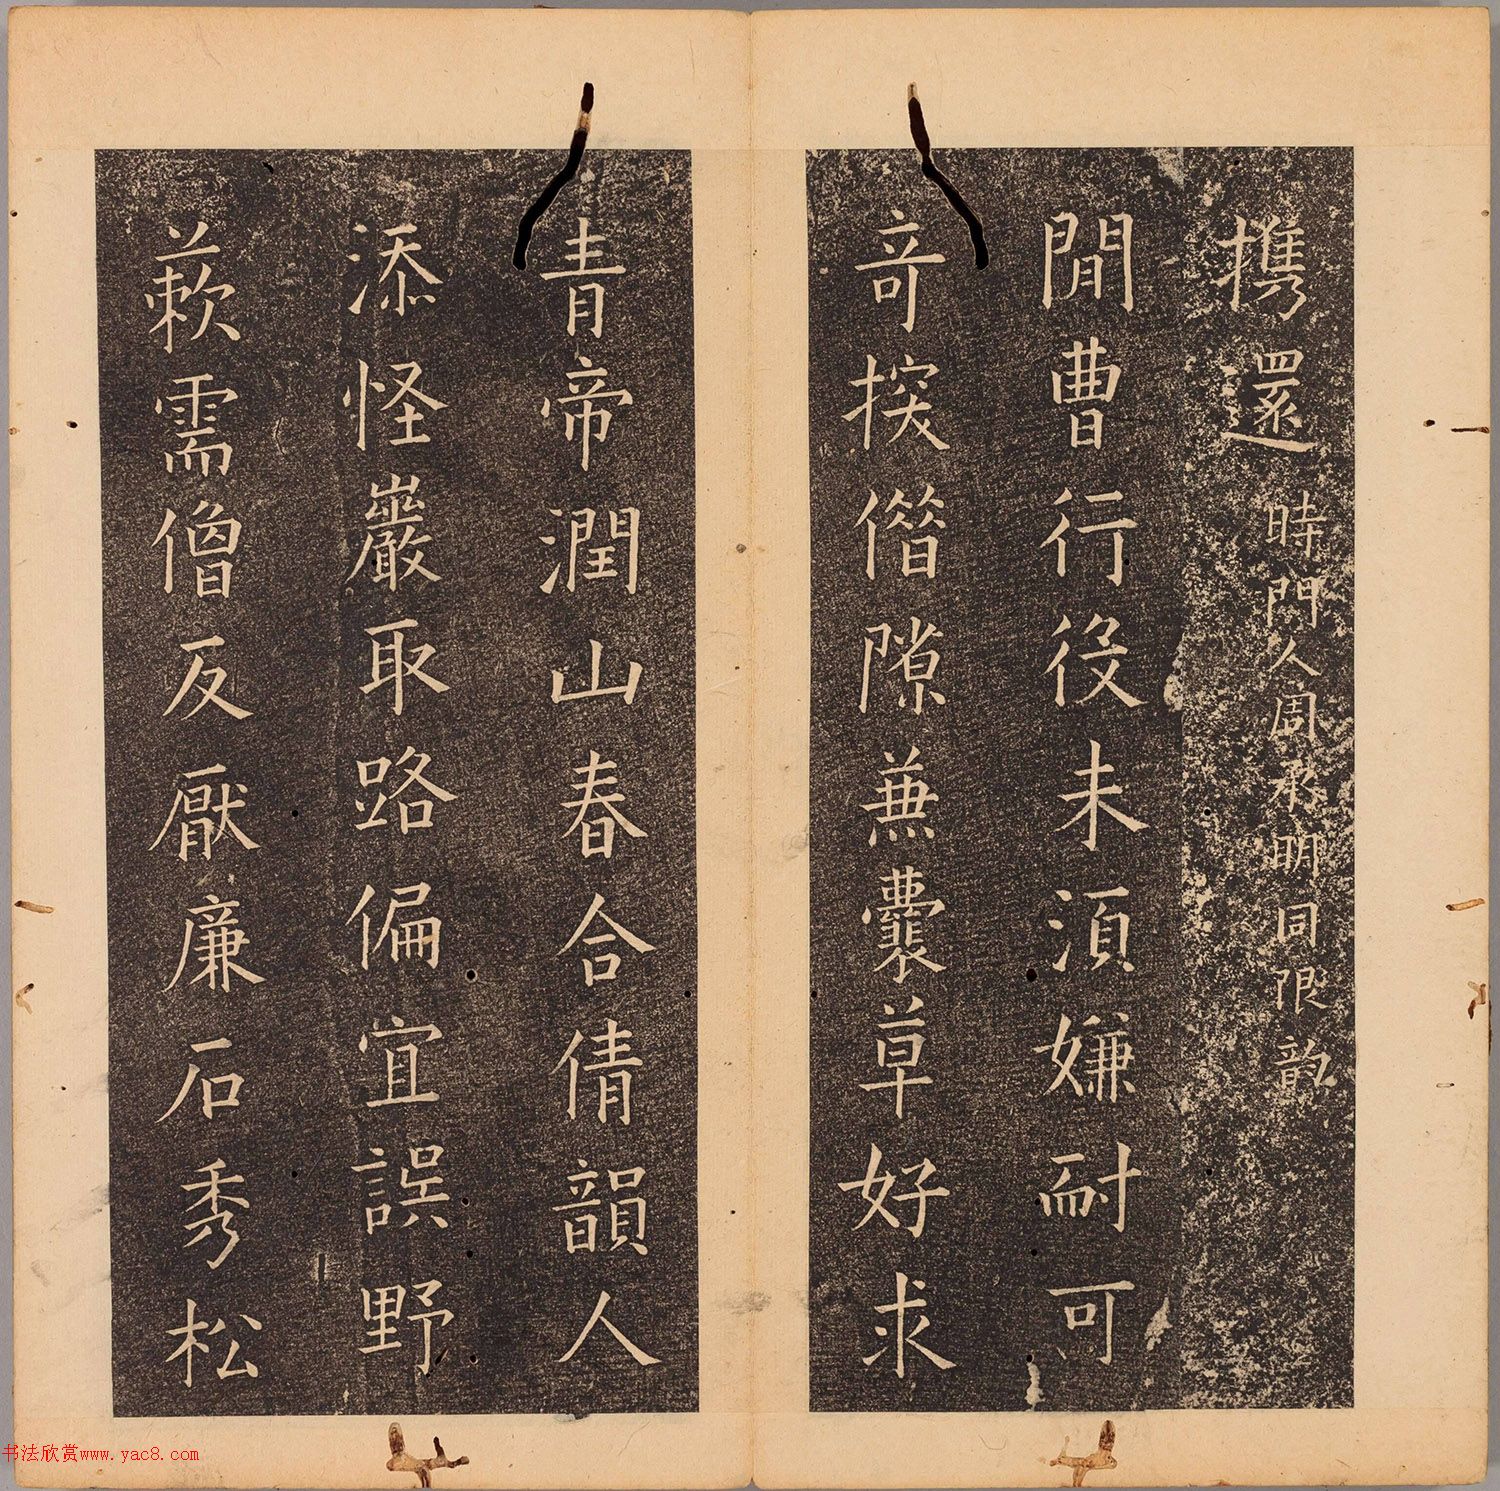 攜還
時門人周承明同限韵
閒曹行役未須嫌耐可
奇探偕隙蕪囊草好求
青帝潤山春合倩韻人
添怪巖取路偏宜誤野
蔌需僧反厭廉石秀松
书法欣赏www.yac8.com